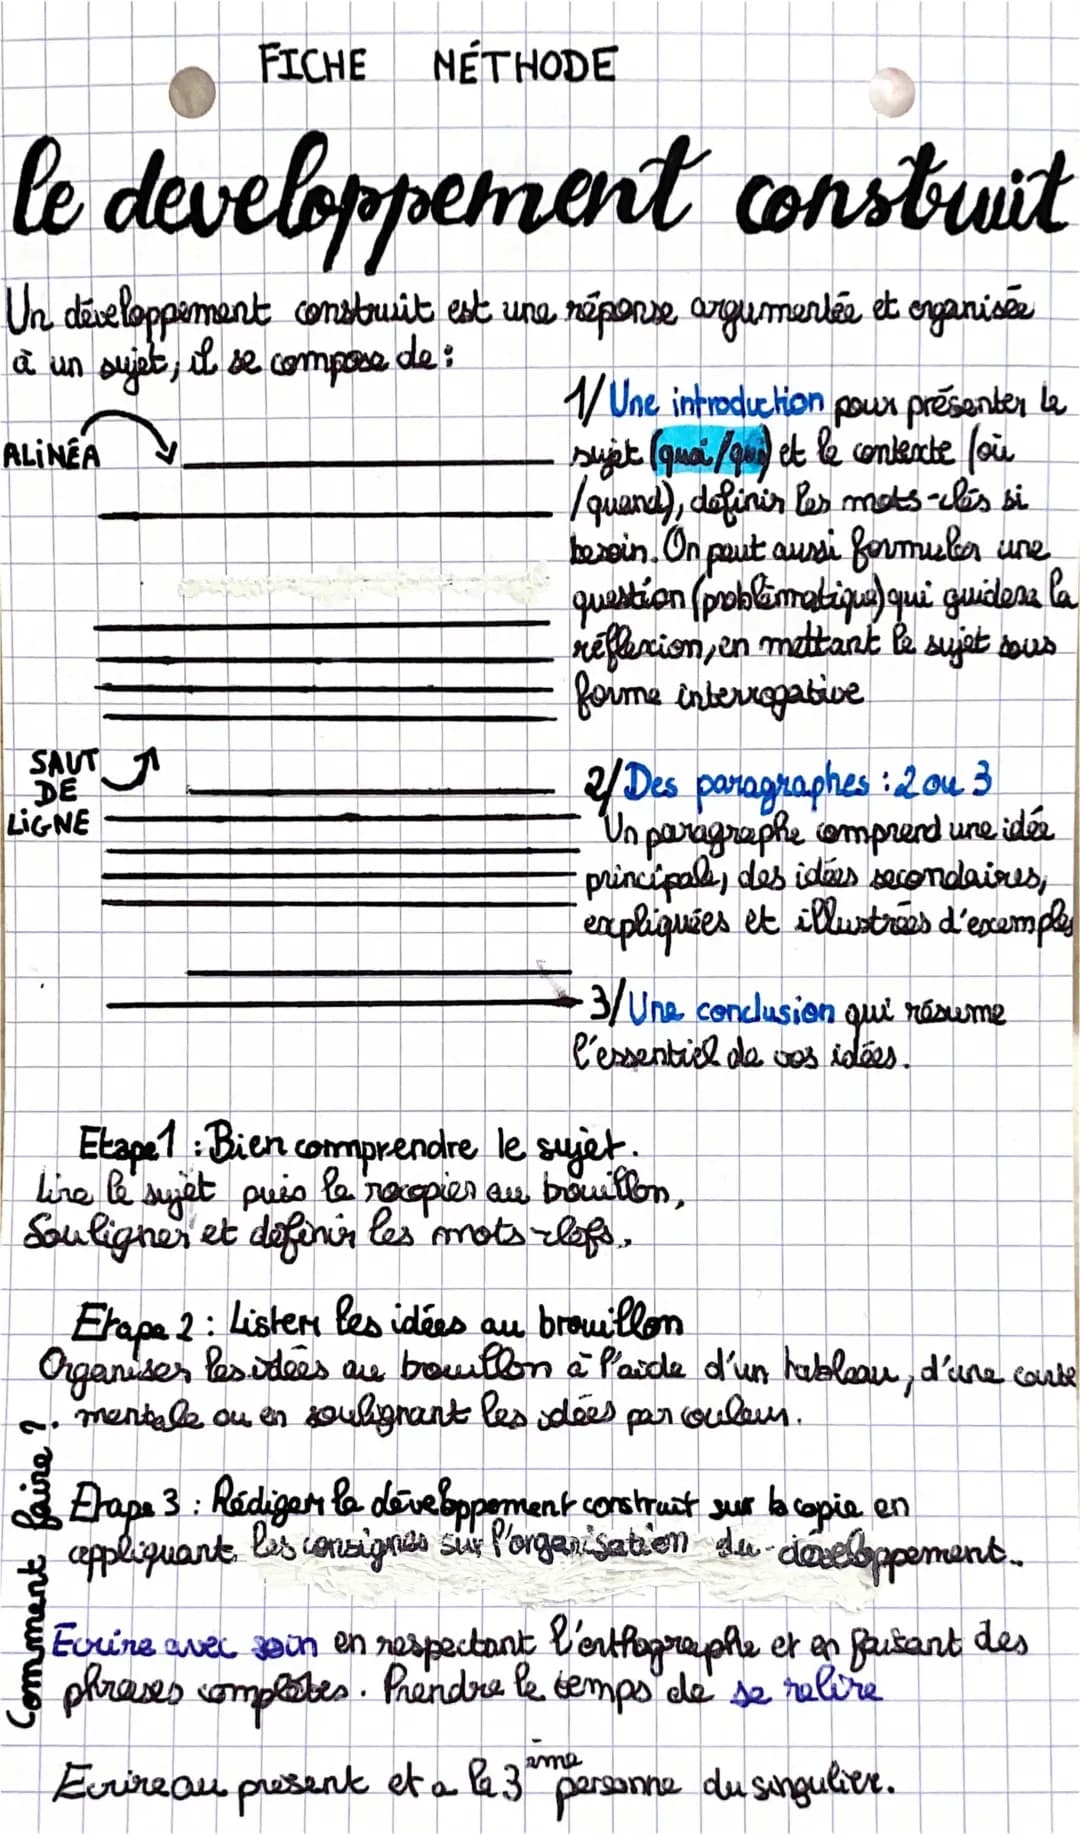 FICHE MÉTHODE
le developpement construit
Un développement construit est une réponse argumentée et organisée
à un sujet, il se compose de :
ALINÉA
1/ Une introduction pour présenter le
sujet (quoi/qui) et le contexte (où
/quand), définir les mots-clés si
besoin. On peut aussi formuler une
question (problématique) qui guidera la
réflexion, en mettant le sujet sous
forme interrogative
SAUT
DE
LIGNE
2/ Des paragraphes : 2 ou 3
Un paragraphe comprend une idée
principale, des idées secondaires,
expliquées et illustrées d'exemples
3/ Une conclusion qui résume
l'essentiel de vos idées.
Comment faire ?
Etape 1 : Bien comprendre le sujet.
Lire le sujet puis le recopier au brouillon,
Souligner et définir les mots-clefs.
Etape 2 : Lister les idées au brouillon
Organiser les idées au brouillon à l'aide d'un tableau, d'une carte
mentale ou en soulignant les idées par couleur.
Etape 3 : Rédiger le développement construit sur la copie en
appliquant les consignes sur l'organisation du développement.
Ecrire avec soin en respectant l'orthographe et en faisant des
phrases complètes. Prendre le temps de se relire
Ecrire au present et a la 3ème personne du singulier.